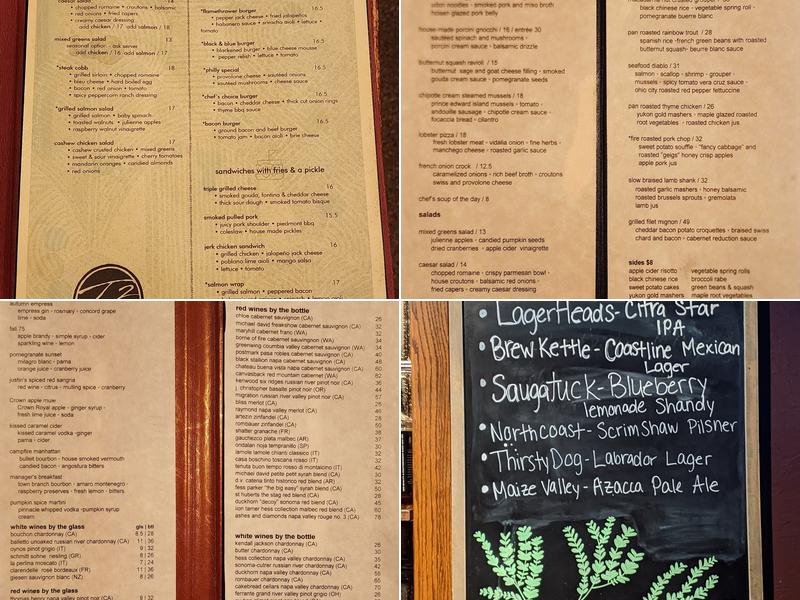 caesar salad 14
• chopped romaine • croutons • balsamic
• red onions • fried capers
• creamy caesar dressing
add chicken / 17 add salmon / 18
mixed greens salad 13
seasonal option - ask server
add chicken / 16 add salmon / 17
*steak cobb 18
• grilled sirloin • chopped romaine
• bleu cheese • hard boiled egg
• bacon • red onion • tomato
• spicy peppercorn ranch dressing
*grilled salmon salad 17
• grilled salmon • baby spinach
• toasted walnuts • julienne apples
• raspberry walnut vinaigrette
cashew chicken salad 17
• cashew crusted chicken • mixed greens
• sweet & sour vinaigrette • cherry tomatoes
• mandarin oranges • candied almonds
• red onions
*flamethrower burger 16.5
• pepper jack cheese • fried jalapeños
• habanero sauce • sriracha aioli • lettuce •
tomato
*black & blue burger 16.5
• blackened burger • blue cheese mousse
• pepper relish • lettuce • tomato
*philly special 16.5
• provolone cheese • sautéed onions
• sautéed mushrooms • cheese sauce
*chef's choice burger 16.5
• bacon • cheddar cheese • thick cut onion rings
• thyme bbq sauce
*bacon burger 16.5
• ground bacon and beef burger
• tomato jam • bacon aioli • brie cheese
sandwiches with fries & a pickle
triple grilled cheese 16
• smoked gouda, fontina & cheddar cheese
• thick sour dough • smoked tomato bisque
smoked pulled pork 15.5
• juicy pork shoulder • piedmont bbq
• coleslaw • house made pickles
jerk chicken sandwich 16
• grilled chicken • jalapeño jack cheese
• poblano lime aioli • mango salsa
• lettuce • tomato
*salmon wrap 17
• grilled salmon • peppered bacon
udon noodles • smoked pork and miso broth
hoisen glazed pork belly
house-made porcini gnocchi / 16 / entrée 30
sautéed spinach and mushrooms •
porcini cream sauce • balsamic drizzle
butternut squash ravioli / 15
butternut sage and goat cheese filling • smoked
gouda cream sauce • pomegranate seeds
chipotle cream steamed mussels / 18
prince edward island mussels • tomato •
andouille sausage • chipotle cream sauce •
focaccia bread • cilantro
lobster pizza / 18
fresh lobster meat • vidalia onion • fine herbs •
manchego cheese • roasted garlic sauce
french onion crock / 12.5
caramelized onions • rich beef broth • croutons
swiss and provolone cheese
chef's soup of the day / 8
salads
mixed greens salad / 13
julienne apples • candied pumpkin seeds
dried cranberries • apple cider vinaigrette
caesar salad / 14
chopped romaine • crispy parmesan bowl •
house croutons • balsamic red onions •
fried capers • creamy caesar dressing
black chinese rice • vegetable spring roll •
pomegranate buerre blanc
pan roasted rainbow trout / 28
spanish rice •french green beans with roasted
butternut squash• beurre blanc sauce
seafood diablo / 31
salmon • scallop • shrimp • grouper •
mussels • spicy tomato vera cruz sauce •
ohio city roasted red pepper fettuccini
pan roasted thyme chicken / 26
yukon gold mashers • maple glazed roasted
root vegetables • roasted chicken jus
*fire roasted pork chop / 32
sweet potato souffle • "fancy cabbage" and
roasted "geigs" honey crisp apples
apple pork jus
slow braised lamb shank / 32
roasted garlic mashers • honey balsamic
roasted brussels sprouts • gremolata
lamb jus
grilled filet mignon / 49
cheddar bacon potato croquettes • braised swiss
chard and bacon • cabernet reduction sauce
sides $8
apple cider risotto vegetable spring rolls
black chinese rice broccoli rabe
sweet potato cakes green beans & squash
yukon gold mashers maple root vegetables
autumn empress
empress gin • rosmary • concord grape
lime • soda
fall 75
apple brandy • simple syrup • cider
sparkling wine • lemon
pomegranate sunset
milagro blanc • pama
orange juice • cranberry juice
justin's spiced red sangria
red wine • citrus • mulling spice • cranberry
Crown apple mule
Crown Royal apple • ginger syrup •
fresh lime juice • soda
kissed caramel cider
kissed caramel vodka •ginger
pama • cider
campfire manhattan
bulleit bourbon • house smoked vermouth
candied bacon • angostura bitters
manager's breakfast
town branch bourbon • amaro montenegro •
raspberry preserves • fresh lemon • bitters
pumpkin spice martini
pinnacle whipped vodka •pumpkin syrup
cream
white wines by the glass gls | btl
bouchon chardonnay (CA) 8.5 | 28
balletto unoaked russian river chardonnay (CA) 11 | 36
cynos pinot grigio (IT) 9 | 32
schmitt sohne riesling (GR) 8 | 26
la perlina moscato (IT) 7 | 24
clarendelle rose bordeaux (FR) 11 | 36
giesen sauvignon blanc (NZ) 8 | 26
red wines by the glass
thomas henry napa valley pinot noir (CA) 9 | 32
red wines by the bottle
chloe cabernet sauvignon (CA) 26
michael david freakshow cabernet sauvignon (CA) 32
maryhill cabernet franc (WA) 32
borne of fire cabernet sauvignon (WA) 34
greenwing coumbia valley cabernet sauvignon (WA) 34
postmark paso robles cabernet sauvignon (CA) 40
black stallion napa cabernet sauvignon (CA) 48
chateau buena vista napa cabernet sauvignon (CA) 60
canvasback red mountain cabernet (WA) 62
kenwood six ridges russian river pinot noir (CA) 36
j. christopher basalte pinot noir (OR) 44
migration russian river valley pinot noir (CA) 57
bliss merlot (CA) 26
raymond napa valley merlot (CA) 46
artezin zinfandel (CA) 28
rombauer zinfandel (CA) 50
shatter granache (FR) 38
gauchezco plata malbec (AR) 37
ondalan rioja tempranillo (SP) 30
lamole lamole chianti classico (IT) 32
casa boschino toscana rosso (IT) 32
tenuta buono tempo rosso di montalcino (IT) 42
michael david petite petit syrah blend (CA) 30
d.v. catena tinto historico red blend (AR) 32
fess parker "the big easy" syrah blend (CA) 50
st huberts the stag red blend (CA) 28
duckhorn "decoy" sonoma red blend (CA) 45
lion tamer hess collection malbec red blend (CA) 60
ashes and diamonds napa valley rouge no. 3 (CA) 78
white wines by the bottle
kendall jackson chardonnay (CA) 26
butter chardonnay (CA) 30
hess collection napa valley chardonnay (CA) 35
sonoma-cutrer russian river chardonnay (CA) 42
duckhorn napa valley chardonnay (CA) 56
rombauer chardonnay (CA) 65
cakebread cellars napa valley chardonnay (CA) 70
ferrante grand river valley pinot grigio (OH)
• LagerHeads - Citra Star
IPA
• Brew Kettle - Coastline Mexican
Lager
• Saugatuck - Blueberry
lemonade Shandy
• Northcoast - Scrimshaw Pilsner
• Thirsty Dog - Labrador Lager
• Maize Valley - Azacca Pale Ale